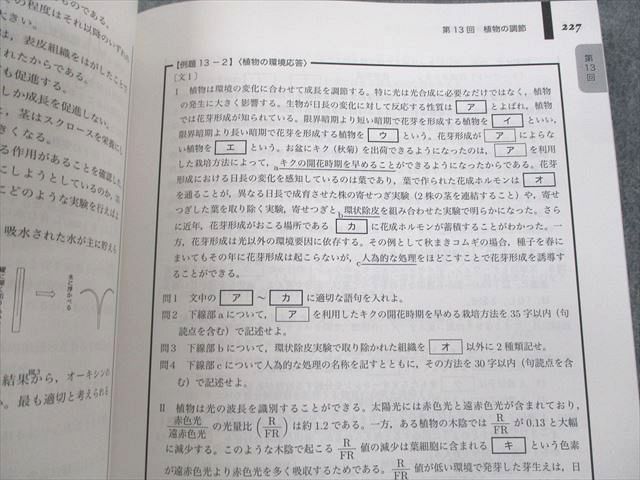 第13回 植物の調節
227
第13回
【例題13－2】〈植物の環境応答〉
［文1］
Ⅰ 植物は環境の変化に合わせて成長を調節する。特に光は光合成に必要なだけではなく，植物
の発生に大きく影響する。生物が日長の変化に対して反応する性質は ア とよばれ，植物
では花芽形成が知られている。限界暗期より短い暗期で花芽を形成する植物を イ といい，
限界暗期より長い暗期で花芽を形成する植物を ウ という。花芽形成が ア によらな
い植物を エ という。お盆にキク（秋菊）を出荷できるようになったのは， ア を利用し
た栽培方法によって，aキクの開花時期を早めることができるようになったからである。花芽
形成における日長の変化を感知しているのは葉であり，葉で作られた花成ホルモンは オ
を通ることが，異なる日長で成育させた株の寄せつぎ実験（2株の茎を連結すること）や，寄せ
つぎした葉を取り除く実験，寄せつぎとb環状除皮を組み合わせた実験で明らかになった。さら
に近年，花芽形成がおこる場所である カ に花成ホルモンが蓄積することがわかった。一
方，花芽形成は光以外の環境要因に依存する。その例として秋まきコムギの場合，種子を春に
まいてもその年に花芽形成は起こらないが，c人為的な処理をほどこすことで花芽形成を誘導す
ることができる。
問1 文中の ア ～ カ に適切な語句を入れよ。
問2 下線部aについて， ア を利用したキクの開花時期を早める栽培方法を35字以内（句
読点を含む）で記述せよ。
問3 下線部bについて，環状除皮実験で取り除かれた組織を オ 以外に2種類記せ。
問4 下線部cについて人為的な処理の名称を記すとともに，その方法を30字以内（句読点を含
む）で記述せよ。
Ⅱ 植物は光の波長を識別することができる。太陽光には赤色光と遠赤色光が含まれており，
赤色光/遠赤色光 の光量比（R/FR）は約1.2である。一方，ある植物の木陰では R/FR が0.13と大幅
に減少する。このような木陰で起こる R/FR 値の減少は葉細胞に含まれる キ という色素
が遠赤色光より赤色光を多く吸収するためである。R/FR 値が低い環境で発芽した芽生えは，日
ものである。
の程度はそれ以降のいずれの
大きい。
は，表皮組織をはがしたことで
れたからである。
も促進する。
しか成長を促進しない。
，茎はスクロースを栄養にし
きくなる。
る作用があることを確認した。
にしようとしているのか，茎
このような実験を行えばよ
吸水された水が主に貯えら
水に浮かべる
結果から，オーキシンの
か。最も適切と考えられる